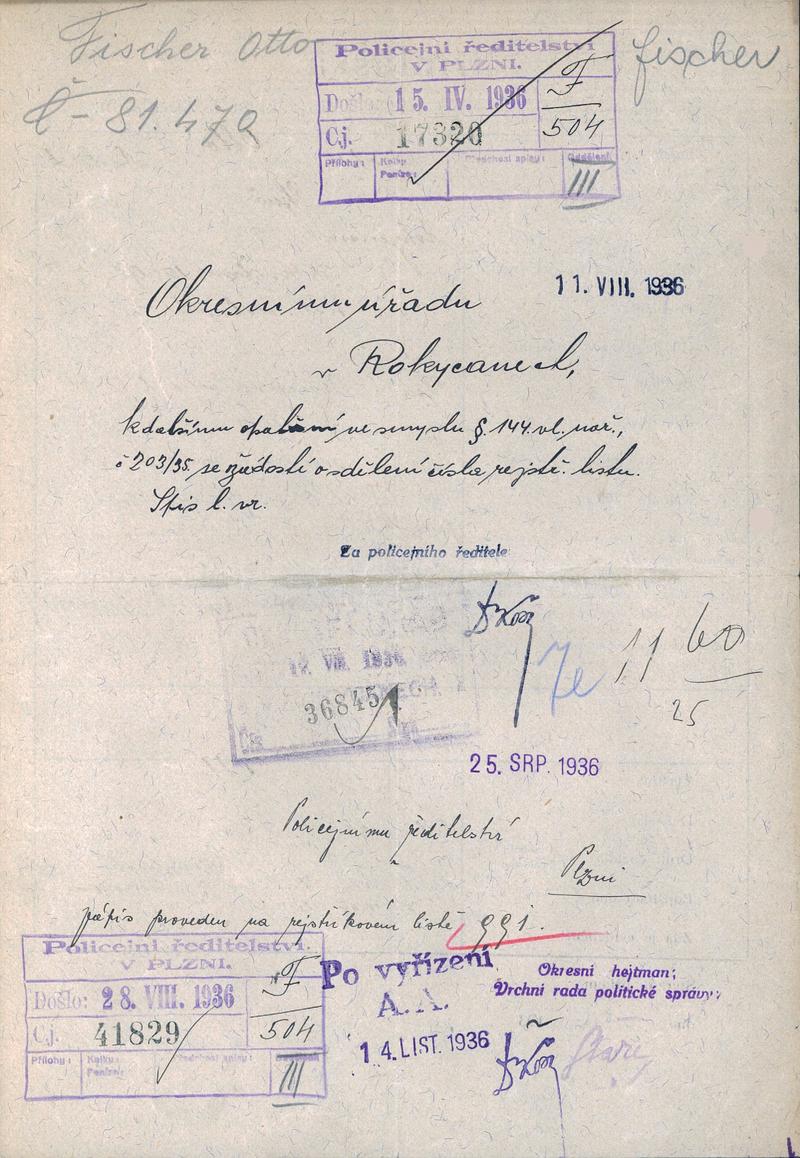 Fischer Otto
Fischer
Č - 81.470
Policejní ředitelství
V PLZNI.
Došlo: 15. IV. 1936
F
504
Čj. 17320
Přílohy: Kolky Peníze: Předchozí spisy: Oddělení
III
11. VIII. 1936
Okresnímu úřadu
v Rokycanech,
k dalšímu opatření ve smyslu §. 144. vl. nař.,
č 203/35. se žádostí o sdělení čísla rejstř. listu.
Spis l. vr.
Za policejního ředitele
12. VIII. 1936
36845
Je 11 60
25
25. SRP. 1936
Policejnímu ředitelství
v
Plzni
zápis proveden na rejstříkovém listě 991.
Policejní ředitelství
V PLZNI.
Došlo: 28. VIII. 1936
F
504
Čj. 41829
Přílohy: Kolky: Peníze: Předchozí spisy:
III
Po vyřízení
A. A.
14. LIST. 1936
Okresní hejtman:
Vrchní rada politické správy: